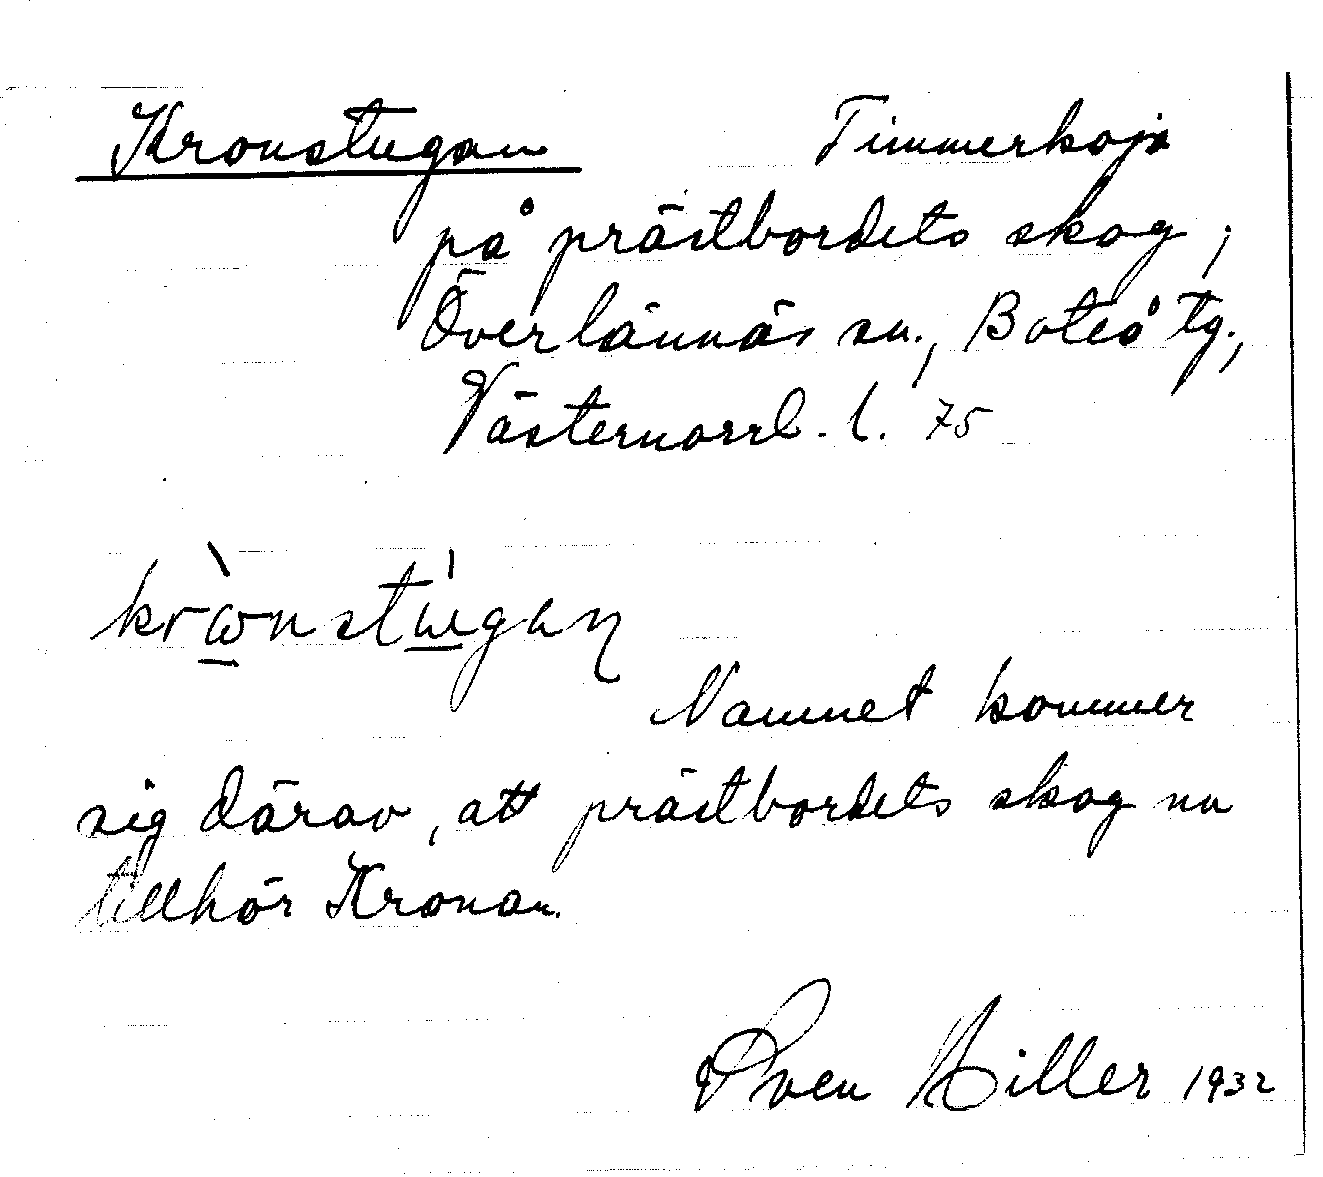 Kronstugan Timmerkoja
på prästbordets skog,
Överlännäs sn., Boteå tg.,
Västernorrl. l. 75
krὼnstɯ́gaη
Namnet kommer
sig därav, att prästbordets skog nu
tillhör Kronan.
Sven Hiller 1932